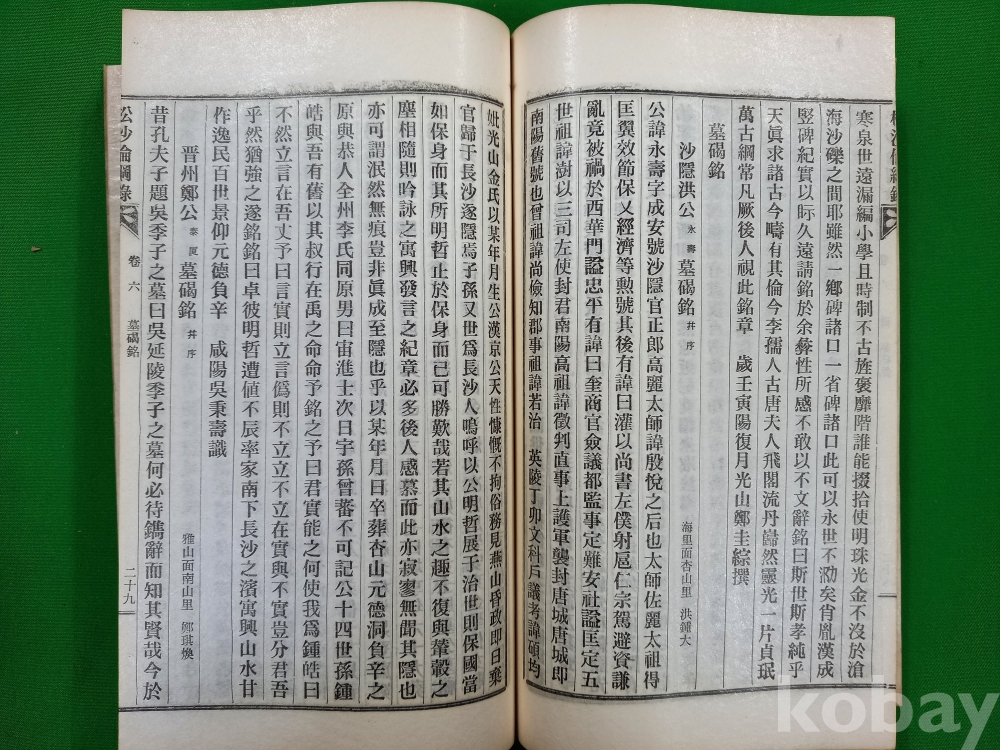 寒泉世遠漏編小學且時制不古旌褒靡階誰能掇拾使明珠光金不沒於滄
海沙礫之間耶雖然一鄉碑諸口一省碑諸口此可以永世不泐矣肖胤漢成
竪碑紀實以眎久遠請銘於余彝性所感不敢以不文辭銘曰斯世斯孝純乎
天眞求諸古今疇有其倫今李孺人古唐夫人飛閣流丹巋然靈光一片貞珉
萬古綱常凡厥後人視此銘章 歲壬寅陽復月光山鄭圭綜撰
墓碣銘
沙隱洪公永壽墓碣銘幷序 海里面杏山里 洪鍾大
公諱永壽字成安號沙隱官正郎高麗太師諱殷悅之后也太師佐麗太祖得
匡翼效節保乂經濟等勳號其後有諱曰灌以尚書左僕射扈仁宗駕避資謙
亂竟被禍於西華門謚忠平有諱曰奎商官僉議都監事定難安社謚匡定五
世祖諱澍以三司左使封君南陽高祖諱徵判直事上護軍襲封唐城唐城即
南陽舊號也曾祖諱尚儉知郡事祖諱若治 英陵丁卯文科戶議考諱碩均
妣光山金氏以某年月生公漢京公天性慷慨不拘俗務見燕山昏政即日棄
官歸于長沙遂隱焉子孫又世爲長沙人嗚呼以公明哲展于治世則保國當
如保身而其所明哲止於保身而已可勝歎哉若其山水之趣不復與輦轂之
塵相隨則吟詠之寓興發言之紀章必多後人感慕而此亦寂寥無聞其隱也
亦可謂泯然無痕豈非眞成至隱也乎以某年月日卒葬杏山元德洞負辛之
原與恭人全州李氏同原男曰宙進士次日宇孫曾蕃不可記公十四世孫鍾
皓與吾有舊以其叔行在禹之命命予銘之予曰君實能之何使我爲鍾皓曰
不然立言在吾丈予曰言實則立言僞則不立立不立在實與不實豈分君吾
乎然猶強之遂銘銘曰卓彼明哲遭値不辰率家南下長沙之濱寓興山水甘
作逸民百世景仰元德負辛 咸陽吳秉壽識
晋州鄭公泰 墓碣銘幷序 雅山面南山里 鄭琪煥
昔孔夫子題吳季子之墓曰吳延陵季子之墓何必待鐫辭而知其賢哉今於
松沙倫綱錄 卷六 墓碣銘 二十九
kobay